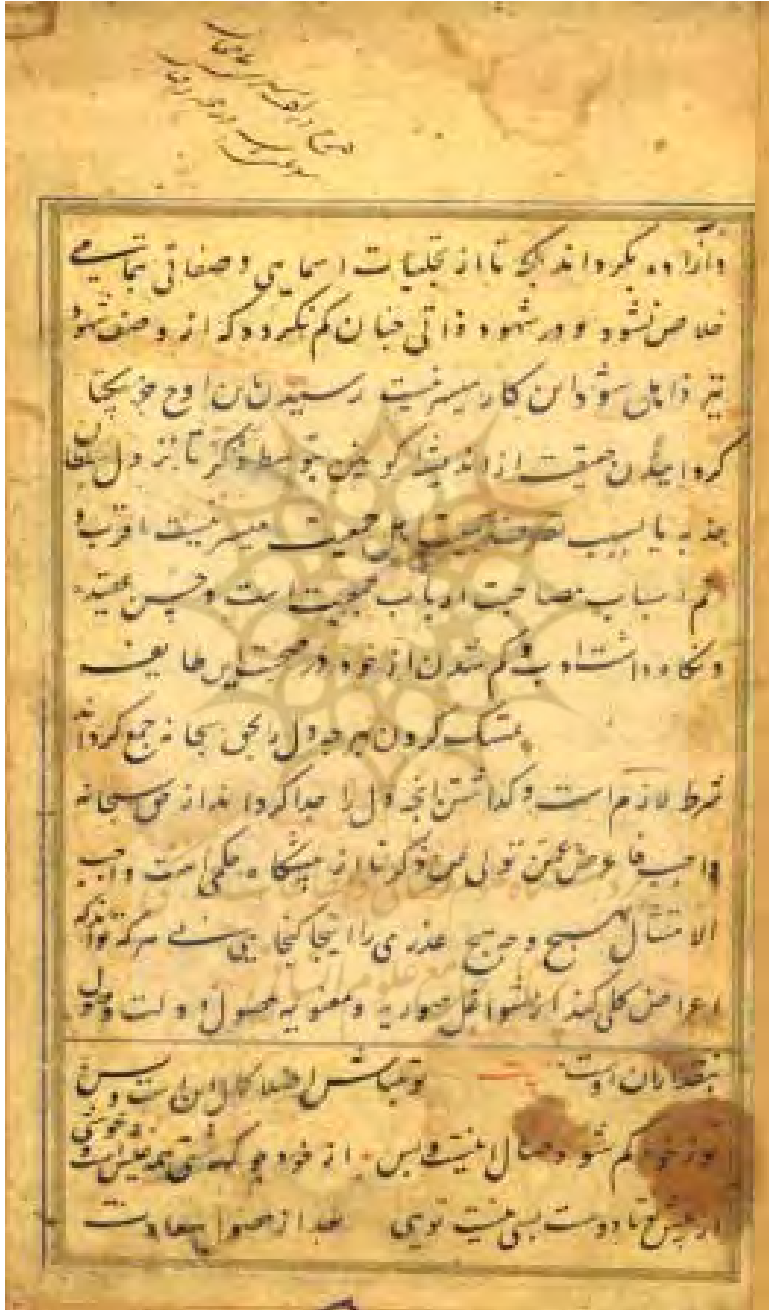 و آزاده بگرداند بلکه تا از تجلیات اسمایی و صفاتی بتمامی
خلاص نشود و در شهود ذاتی چنان گم نگردد که از وصف شهود
نیز ذاهل شود این کار میسر نیست رسیدن باین اوج جز بیکتا
گردانیدن حقیقت از اندیشه کونین بتوسط ذکر تا نزول سلطان
جذبه یا بسبب تصرف صحبت اهل جمعیت میسر نیست اقرب و
تم اسباب مصاحبت ارباب جمعیت است و حسن عقیده
و نگاه داشت ادب و گم شدن از خود در صحبت این طایفه
تمسک کردن بهر چه دل را بحق سبحانه جمع گرداند
شرط لازم است و گذاشتن آنچه دل را جدا گرداند از حق سبحانه
واجب فاعرض عمن تولی عن ذکرنا از مشکاه حکمی است واجب
الامتثال بهیچ وجه هیچ عذری را اینجا گنجایی نی هر که تواند که
اعراض کلی کند از شواغل صوریه و معنویه محصول دولت و دل
نقد ایمان اوست بیت تو مباش اصلا کمال این است و بس
تو ز خود گم شو وصال اینست و بس از خود چو گذشتی همه عیش است و خوشی
از عرش تا دوست بسی نیست تویی